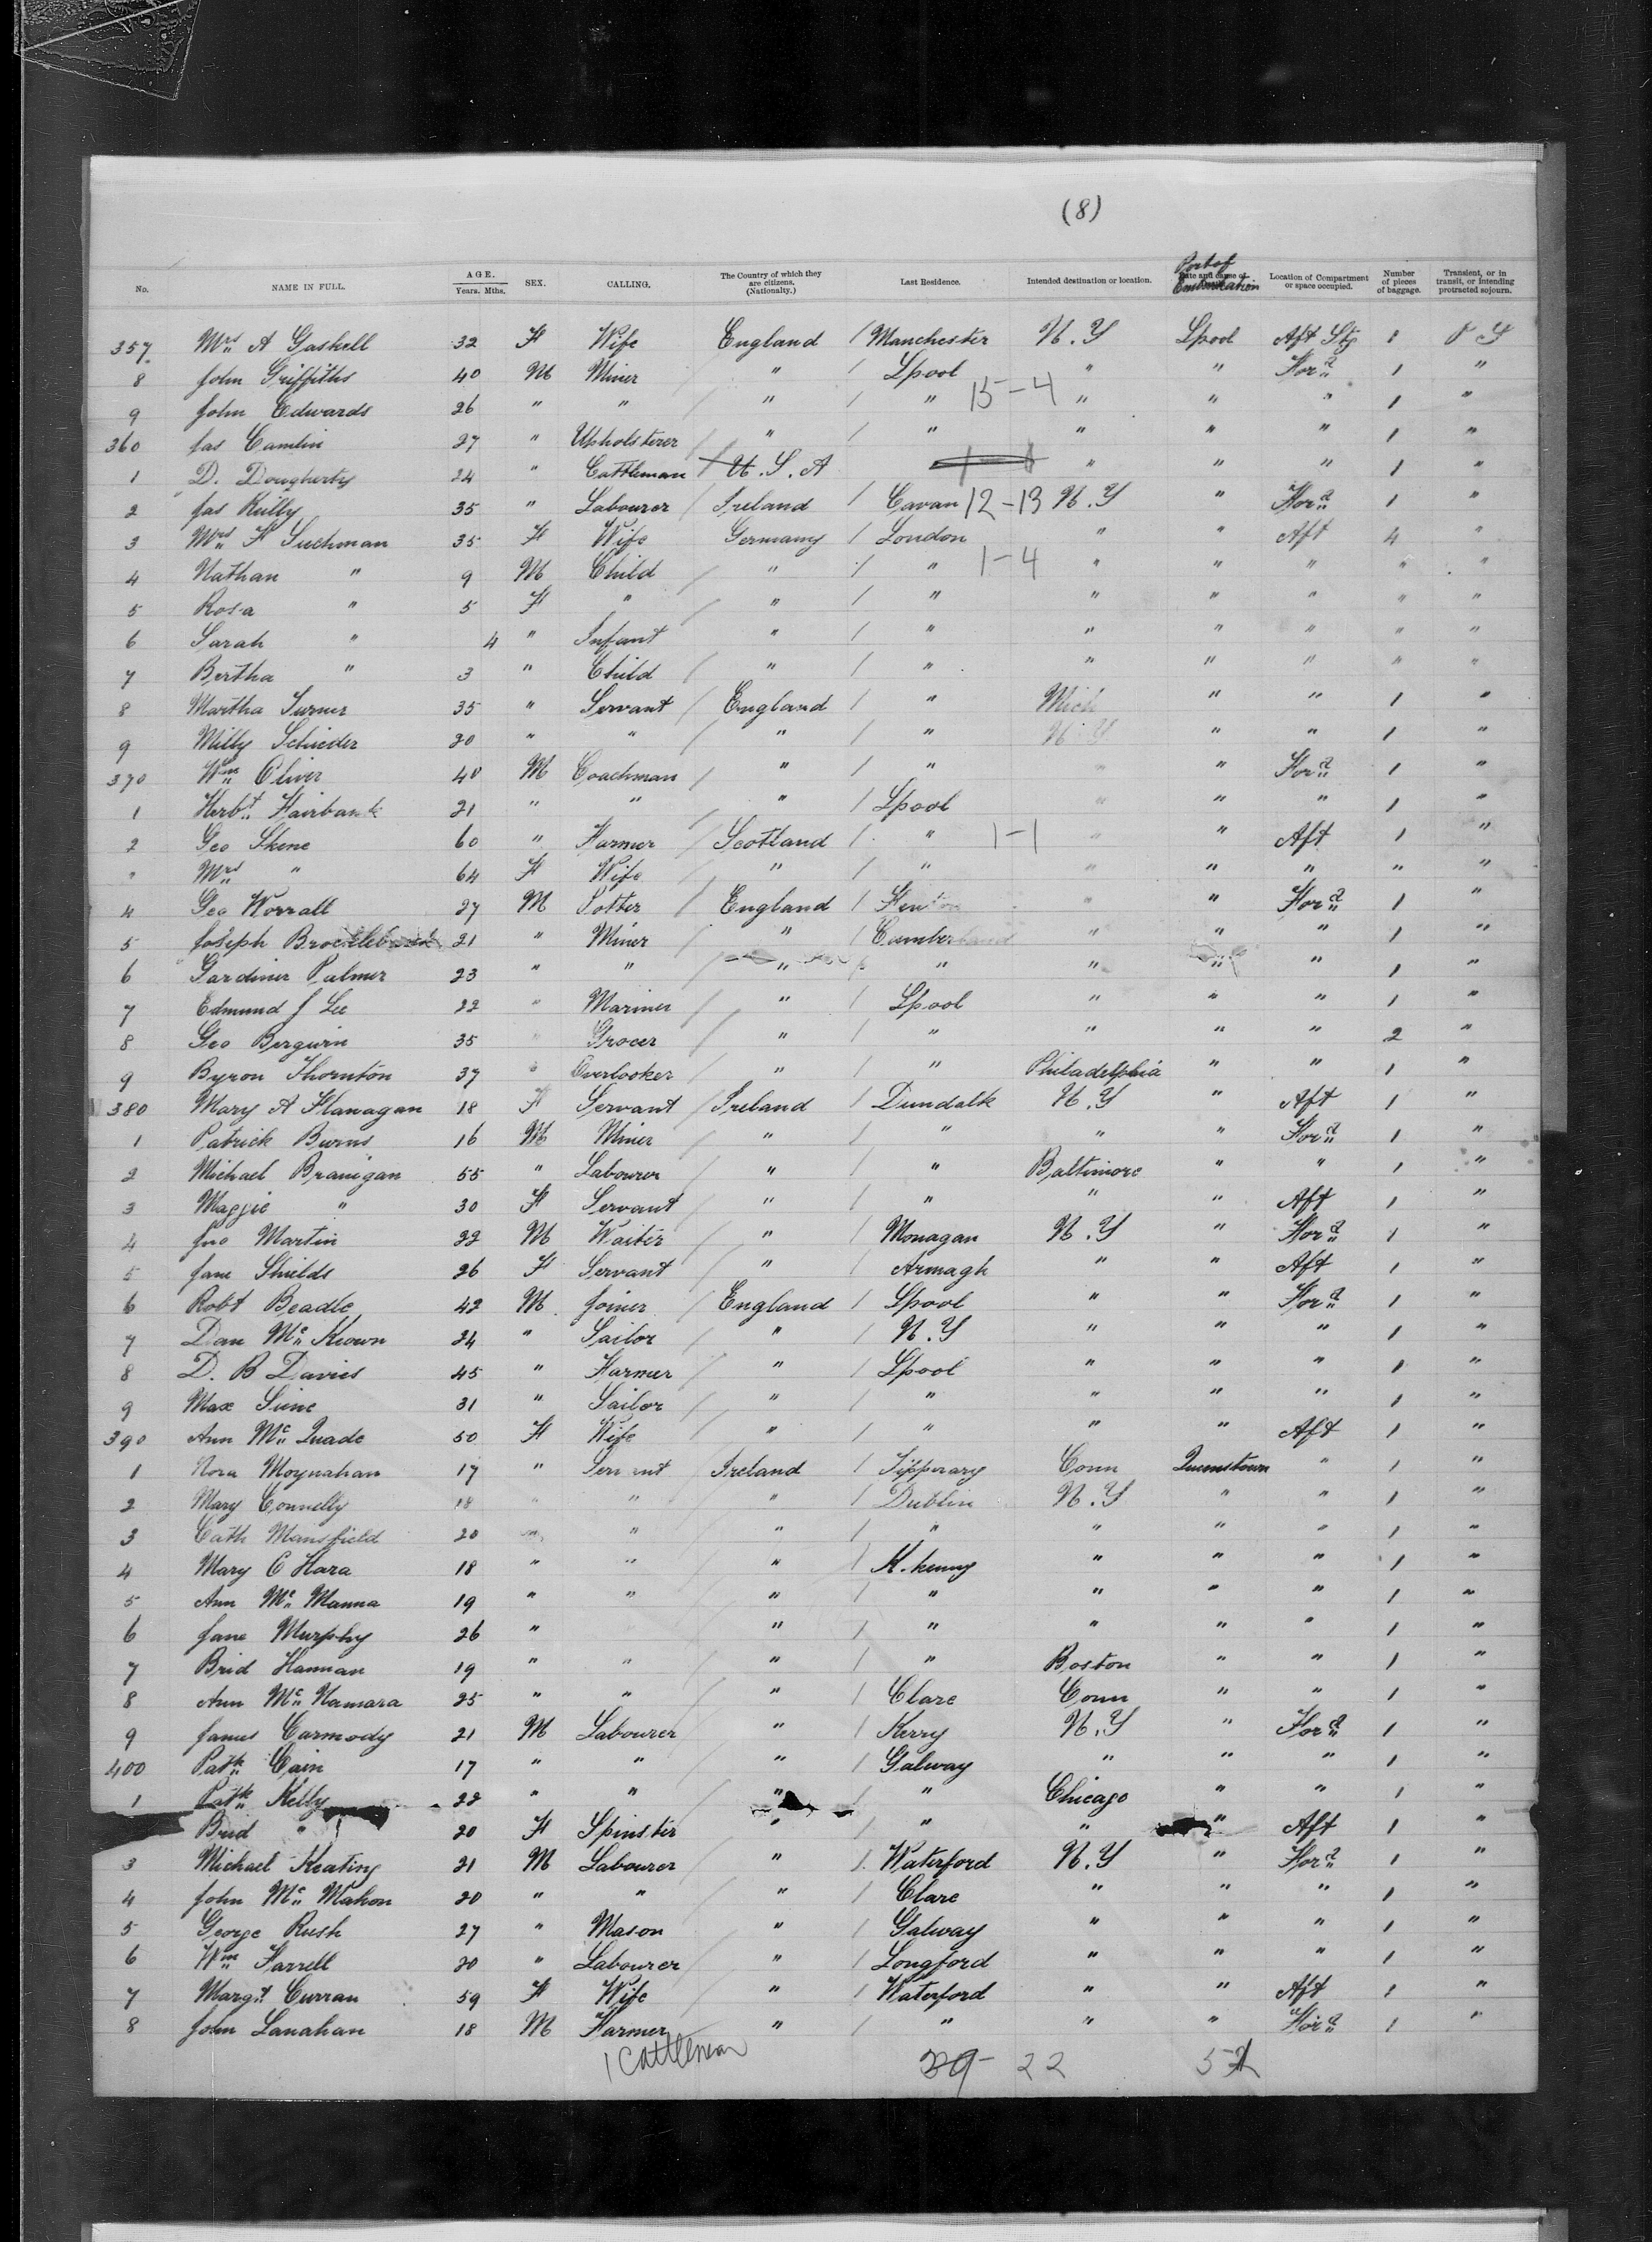 (8)
No. NAME IN FULL. AGE. Years. Mths. SEX. CALLING. The Country of which they are citizens. (Nationalty.) Last Residence. Intended destination or location. Port of Embarkation Location of Compartment or space occupied. Number of pieces of baggage. Transient, or in transit, or intending protracted sojourn.
357 Mrs A Gaskell 32 F Wife England / Manchester N.Y Lpool Aft Stg 1 P S
8 John Griffiths 40 M Miner " / Lpool " " Ford 1 "
9 John Edwards 26 " " / " / " 15-4 " " " 1 "
360 Jas Camlin 27 " Upholsterer / " / " " " " 1 "
1 D. Dougherty 24 " Cattleman / U.S.A " " " 1 "
2 Jas Reilly 35 " Labourer / Ireland / Cavan 12-13 N.Y " Ford 1 "
3 Mrs F Suchman 35 F Wife Germany / London " " Aft 4 "
4 Nathan " 9 M Child / " / " 1-4 " " " " "
5 Rosa " 5 F " / " / " " " " " "
6 Sarah " 4 " Infant " / " " " " " "
7 Bertha " 3 " Child / " / " " " " " "
8 Martha Turner 35 " Servant / England / " Mich " " 1 "
9 Milly Schieder 20 " " / " / " N.Y " " 1 "
370 Wm Oliver 40 M Coachman / " / " " " Ford 1 "
1 Herbt Fairbank 21 " " " / Lpool " " " 1 "
2 Geo Skene 60 " Farmer / Scotland / " 1-1 " " Aft 1 "
" Mrs " 64 F Wife / " / " " " " " "
4 Geo Worrall 27 M Potter / England / Fenton " " Ford 1 "
5 Joseph Brocklebank 21 " Miner / " / Cumberland " " " 1 "
6 Gardiner Palmer 23 " " / " / " " " " 1 "
7 Edmund J Lee 22 " Mariner / " / Lpool " " " 1 "
8 Geo Bergwin 35 " Grocer / " / " " " " 2 "
9 Byron Thornton 37 " Overlooker / " / " Philadelphia " " 1 "
380 Mary A Flanagan 18 F Servant / Ireland / Dundalk N.Y " Aft 1 "
1 Patrick Burns 16 M Miner / " / " " " Ford 1 "
2 Michael Branigan 55 " Labourer / " / " Baltimore " " 1 "
3 Maggie " 30 F Servant / " / " " " Aft 1 "
4 Jno Martin 22 M Waiter / " / Monagan N.Y " Ford 1 "
5 Jane Shields 26 F Servant / " / Armagh " " Aft 1 "
6 Robt Beadle 42 M Joiner / England / Lpool " " Ford 1 "
7 Dan Mc Keown 24 " Sailor / " / N.Y " " " 1 "
8 D. B Davies 45 " Farmer / " / Lpool " " " 1 "
9 Max 31 " Sailor / " / " " " " 1 "
390 Ann Mc Quade 50 F Wife / " / " " " Aft 1 "
1 Nora Moynahan 17 " Servant / Ireland / Tipperary Conn Queenstown " 1 "
2 Mary Connelly 18 " " / " / Dublin N.Y " " 1 "
3 Cath Mansfield 20 " " / " / " " " " 1 "
4 Mary O Hara 18 " " / " / K.kenny " " " 1 "
5 Ann Mc Manna 19 " " / " / " " " " 1 "
6 Jane Murphy 26 " " / " " " " 1 "
7 Brid Hannan 19 " " / " / " Boston " " 1 "
8 Ann Mc Namara 25 " " / " / Clare Conn " " 1 "
9 James Carmody 21 M Labourer / " / Kerry N.Y " Ford 1 "
400 Patk Cain 17 " " / " / Galway " " " 1 "
1 Patk Kelly 22 " " / " / " Chicago " " 1 "
Brid " 20 F Spinster / " / " " " Aft 1 "
3 Michael Keating 21 M Labourer / " / Waterford N.Y " Ford 1 "
4 John Mc Mahon 20 " " / " / Clare " " " 1 "
5 George Rush 27 " Mason / " / Galway " " " 1 "
6 Wm Farrell 20 " Labourer / " / Longford " " " 1 "
7 Margt Curran 59 F Wife / " / Waterford " " Aft 1 "
8 John Lanahan 18 M Farmer / " / " " " Ford 1 "
1 Cattleman 29 - 22